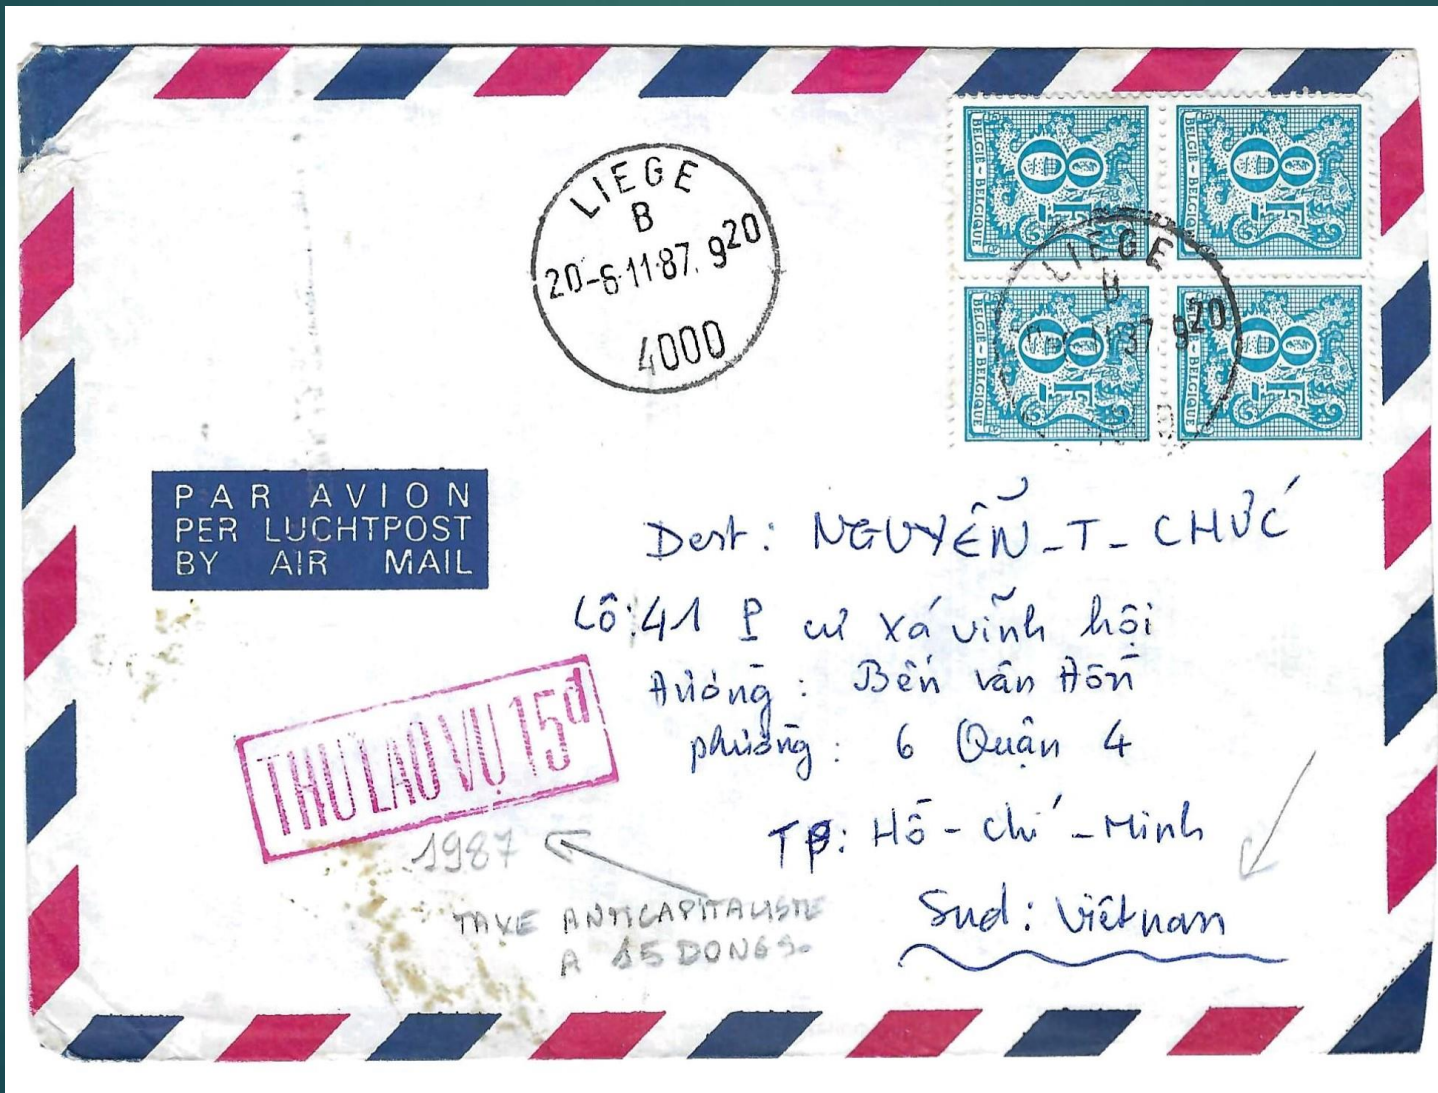 LIEGE
B
20-6-11-87. 9²⁰
4000
BELGIË - BELGIQUE
8F
BELGIË - BELGIQUE
8F
BELGIË - BELGIQUE
8F
BELGIË - BELGIQUE
8F
LIEGE
B
11 87 9²⁰
PAR AVION
PER LUCHTPOST
BY AIR MAIL
Dest: NGUYỄN-T-CHỨC
Lô: 41 P cư xá vĩnh hội
Đường: Bến vân Đồn
phường: 6 Quận 4
TP: Hồ-chí-Minh
Sud: Việtnam
THU LAO VỤ 15đ
1987
TAXE ANTICAPITALISTE
A 15 DONGS.